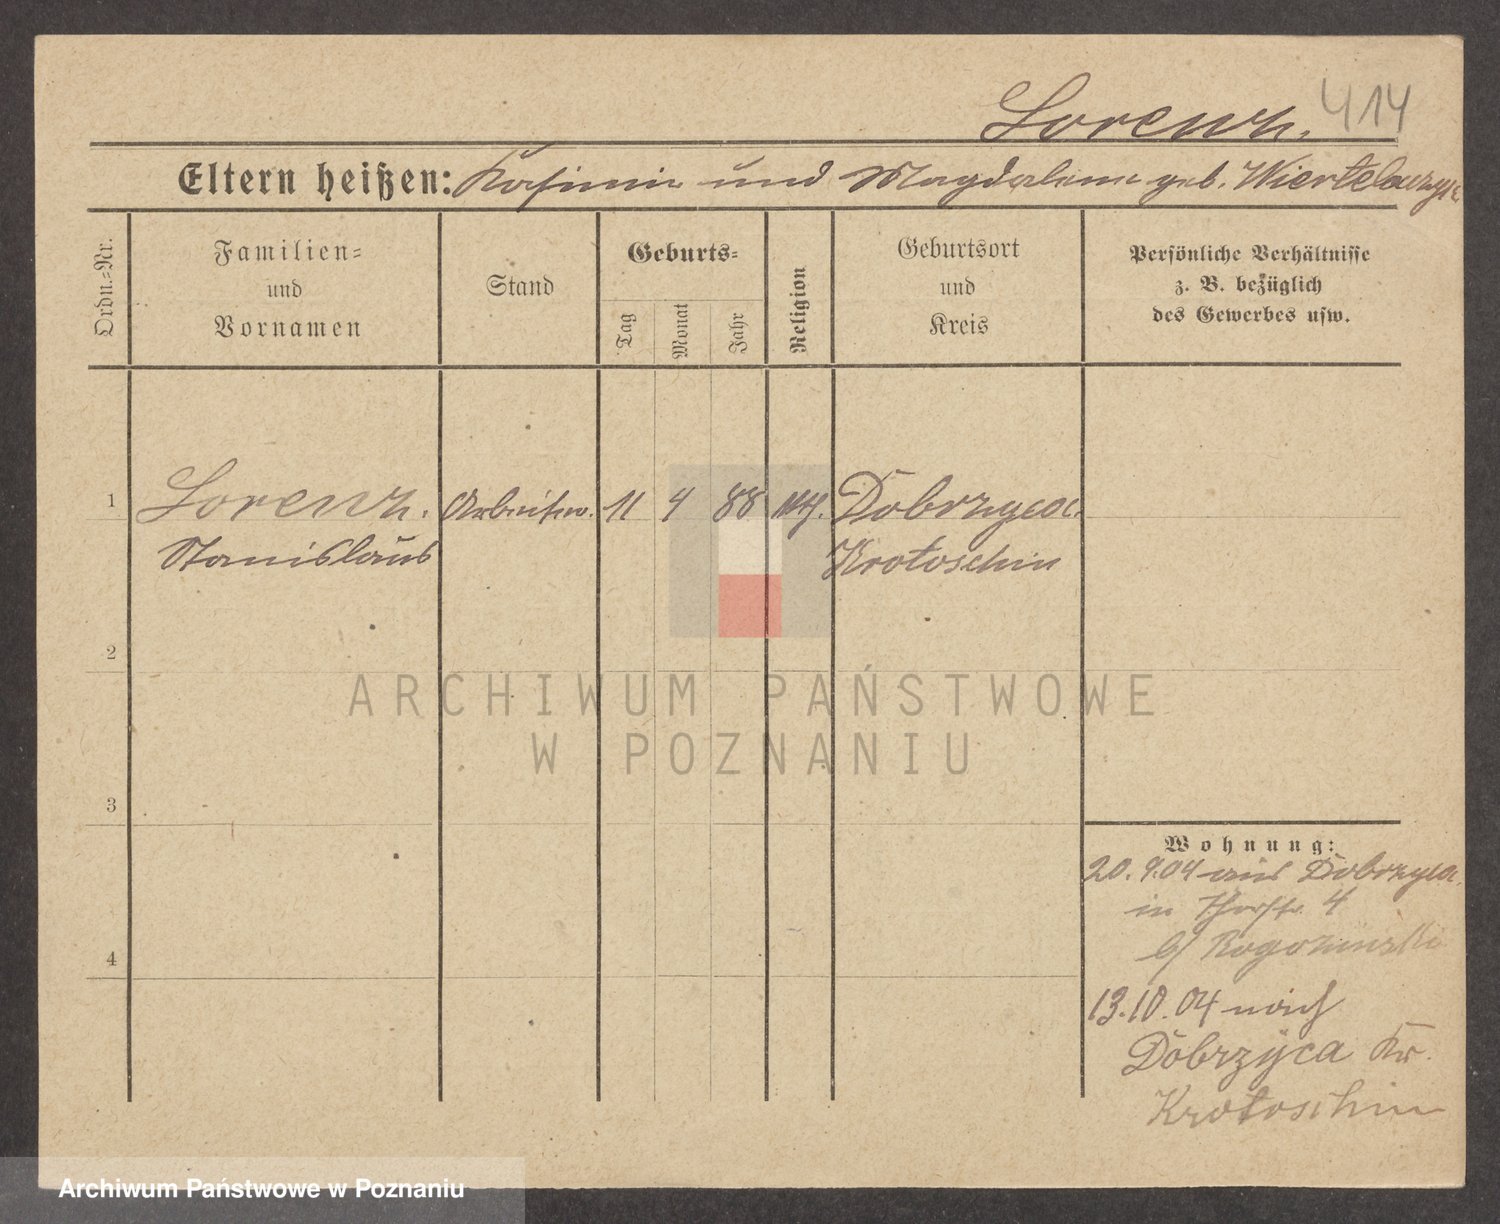 Lorenz. 414
Eltern heißen: Kasimir und Magdalena geb. Wiertelarczyk
Ordn.-Nr.
Familien-
und
Vornamen
Stand
Geburts-
Tag
Monat
Jahr
Religion
Geburtsort
und
Kreis
Persönliche Verhältnisse
z. B. bezüglich
des Gewerbes usw.
1 Lorenz. Arbeiter. 11 4 88 kath. Dobrzyca.
Stanislaus Krotoschin
2
3
4
Wohnung:
20.9.04 aus Dobrzyca.
in 4
b/ Rogozinski
13.10.04 nach
Dobrzyca Kr.
Krotoschin
ARCHIWUM PAŃSTWOWE
W POZNANIU
Archiwum Państwowe w Poznaniu